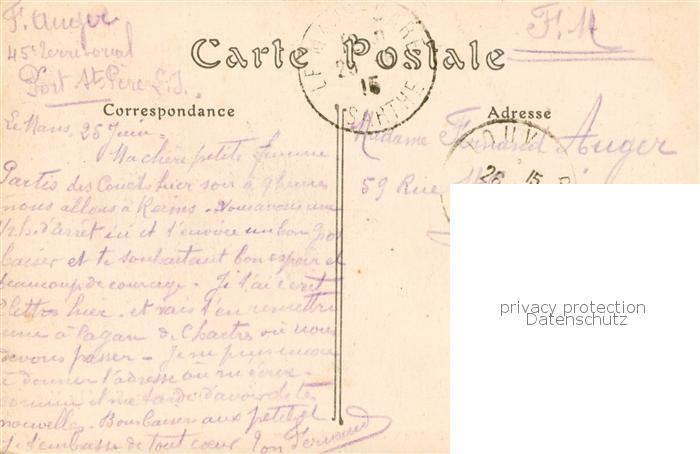 F. Auger
45e Territorial
Port St Père L.I.
F.M
Carte Postale
LE MANS GARE
25 15
SARTHE
Correspondance
Adresse
Le Mans, 25 Juin.
Ma chère petite femme
Partis des Couëts hier soir à 9 heures
nous allons à Reims. Nous avons une
1/2 h. d'arrêt ici et t'envoie un bon gros
baiser et te souhaitant bon espoir et
beaucoup de courage. Je t'ai écrit
lettres hier. et vais t'en remettre
une à la gare de Chartres où nous
devons passer. Je ne puis encore
donner l'adresse où
il me tarde d'avoir de tes
nouvelles. Bons baisers aux petits et
je t'embrasse de tout cœur Ton Fernand
Madame Fernand Auger
59 Rue
26 15
privacy protection
Datenschutz